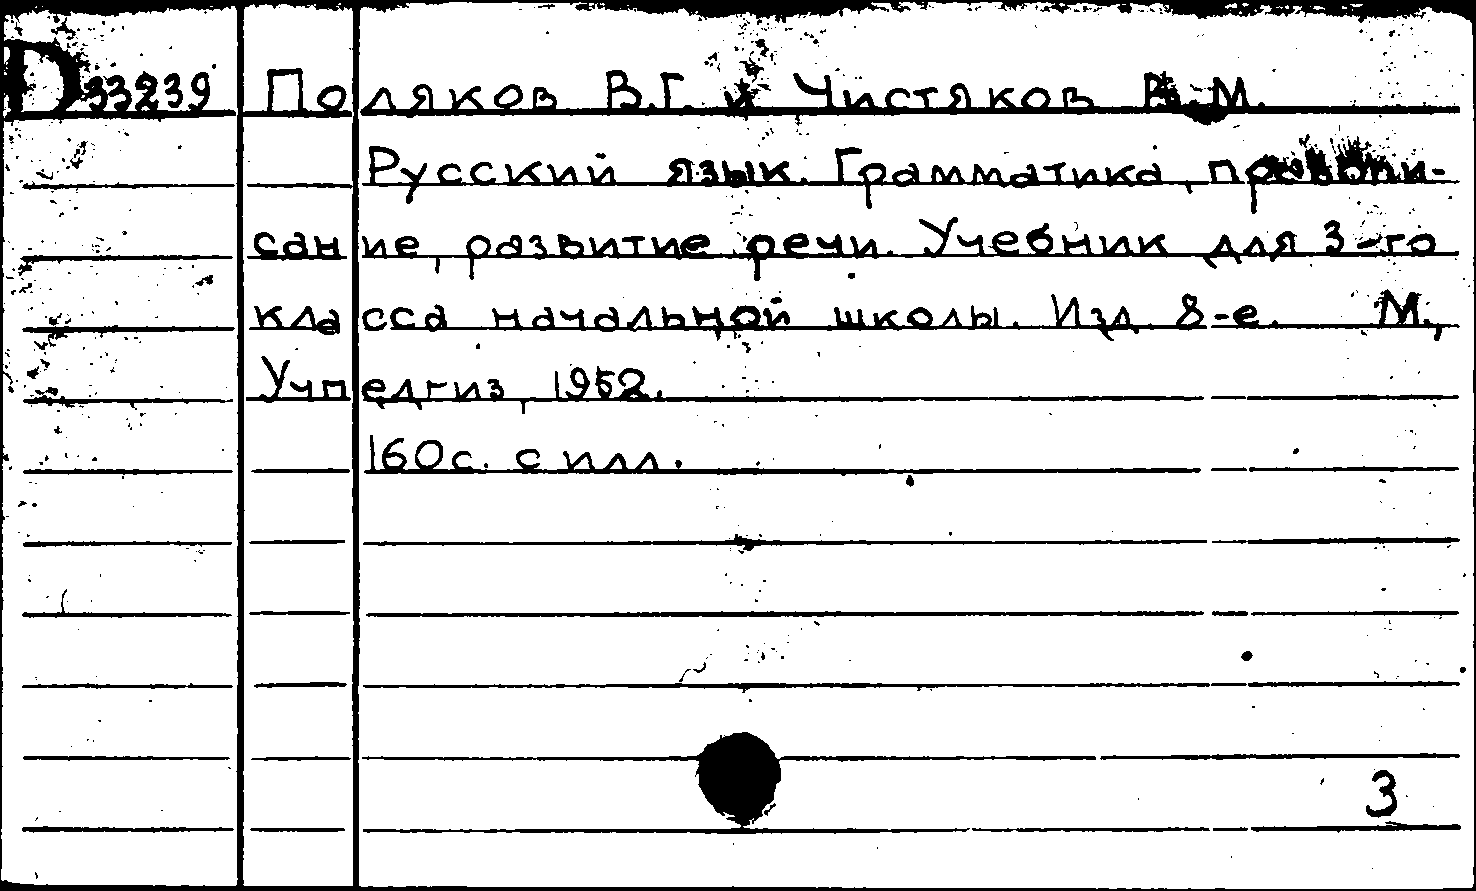 D 33239 Поляков В.Г. и Чистяков В.М.
Русский язык. Грамматика, правопи-
сание, развитие речи. Учебник для 3-го
класса начальной школы. Изд. 8-е. М.,
Учпедгиз, 1952.
160с. с илл.
3